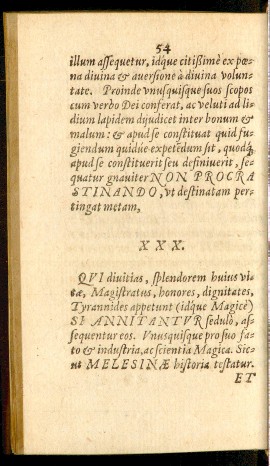 54
illum assequetur, idque citißimè ex pœ-
na diuina & auersione à diuina volun-
tate. Proinde vnusquisque suos scopos
cum verbo Dei conferat, ac veluti ad li-
dium lapidem dijudicet inter bonum &
malum: & apud se constituat quid fu-
giendum quidúe expetēdum sit, quodq́;
apud se constituerit seu definiuerit, se-
quatur gnauiter NON PROCRA
STINANDO, vt destinatam per-
tingat metam,
XXX.
QVI diuitias, splendorem huius vi-
tæ, Magistratus, honores, dignitates,
Tyrannides appetunt (idque Magicè)
SI ANNITANTVR sedulò, as-
sequentur eos. Vnusquisque pro suo fa-
to & industria, ac scientia Magica. Sic-
ut MELESINÆ historia testatur.
ET